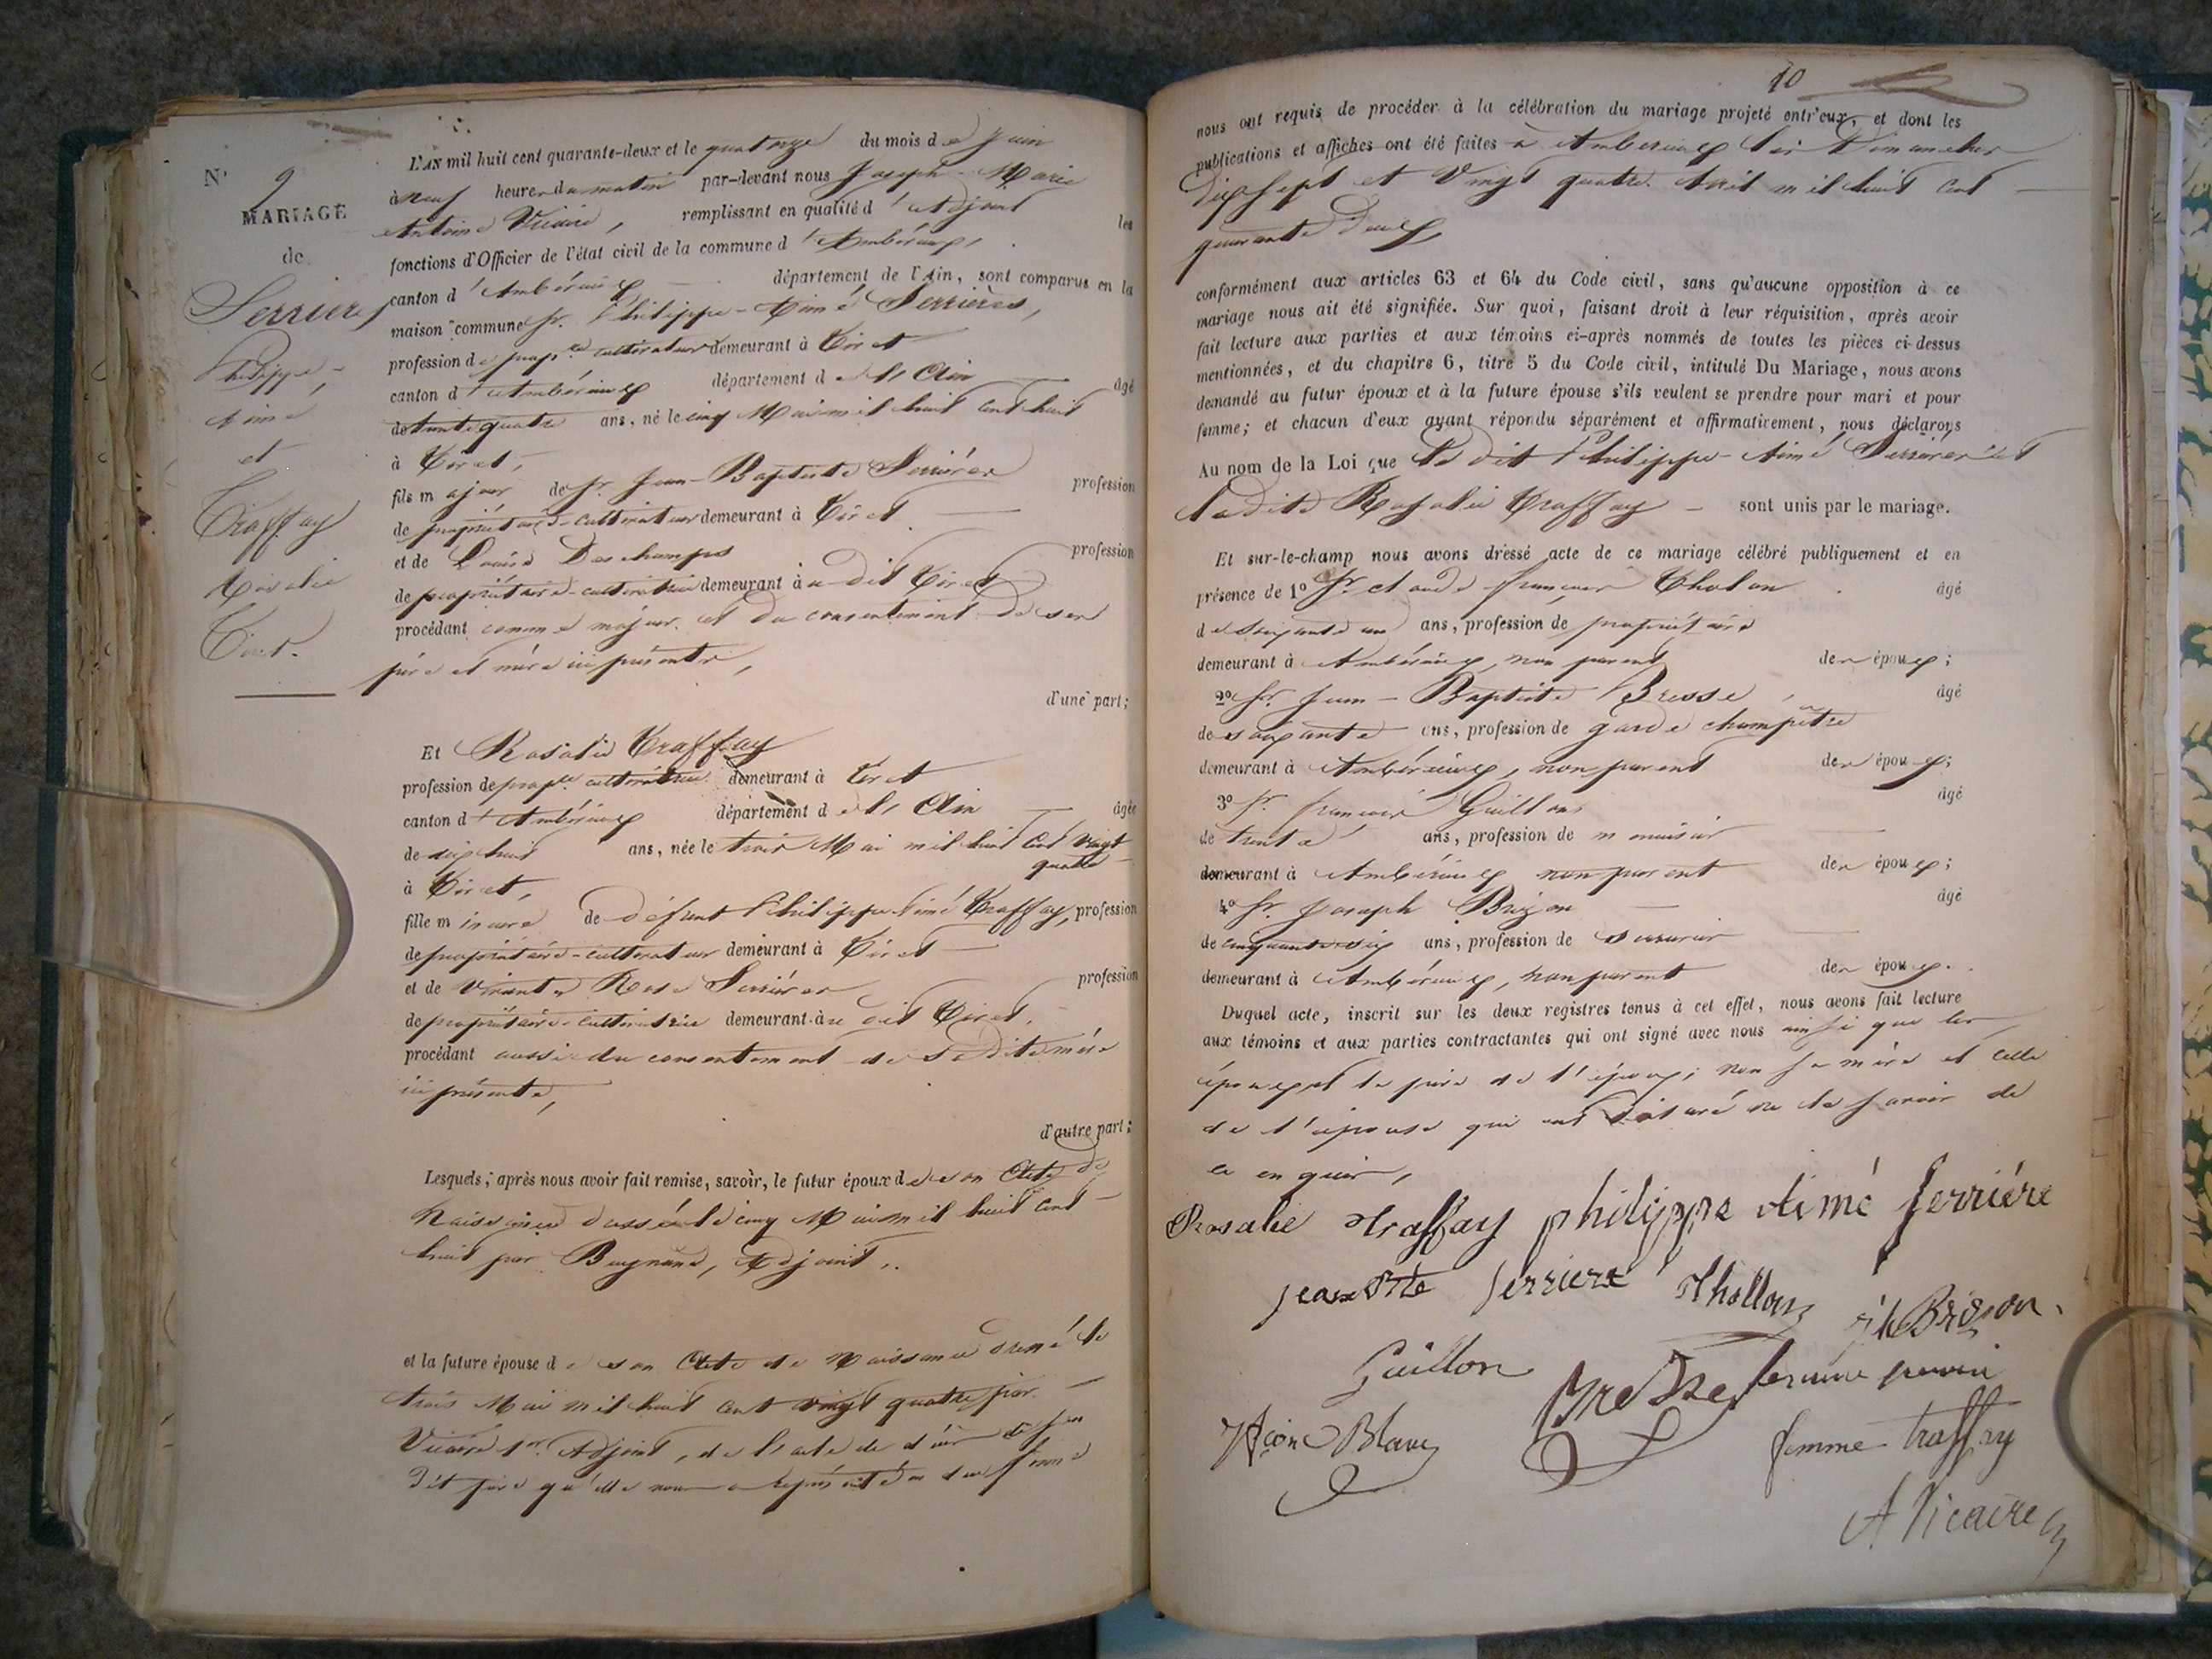 N° 9
MARIAGE
de
Serrières
Philippe-
Aimé
et
Traffay
Rosalie
Tiret.
L'AN mil huit cent quarante-deux et le quatorze du mois de Juin
à neuf heures du matin par-devant nous Joseph-Marie
Antoine Vicaire, remplissant en qualité d'Adjoint les
fonctions d'Officier de l'état civil de la commune d'Ambérieux,
canton d'Ambérieux département de l'Ain, sont comparus en la
maison commune Sr. Philippe-Aimé Serrières,
profession de propre cultivateur demeurant à Tiret
canton d'Ambérieux département de l'Ain âgé
de trente quatre ans, né le cinq Mai mil huit cent huit
à Tiret,
fils majeur de Sr. Jean-Baptiste Serrières profession
de propriétaire-cultivateur demeurant à Tiret
et de Louise Deschamps profession
de propriétaire-cultivatrice demeurant à u dit Tiret
procédant comme majeur et du consentement de ses
père et mère ici présents,
d'une part;
Et Rosalie Traffay
profession de propre cultivatrice demeurant à Tiret
canton d'Ambérieux département de l'Ain âgée
de dix huit ans, née le trois Mai mil huit cent vingt
quatre
à Tiret,
fille mineure de défunt Philippe Aimé Traffay, profession
de propriétaire-cultivateur demeurant à Tiret
et de vivante Rose Serrières profession
de propriétaire-cultivatrice demeurant à u dit Tiret,
procédant aussi du consentement de sa dite mère
ici présente,
d'autre part;
Lesquels, après nous avoir fait remise, savoir, le futur époux de son Acte de
Naissance dressé le cinq Mai mil huit cent
huit par Bugnand, Adjoint,
et la future épouse de son Acte de Naissance dressé le
trois Mai mil huit cent vingt quatre par
Vicaire 1er. Adjoint, de l'acte de décès de son
dit père qu'elle nous a représenté en due forme
10
nous ont requis de procéder à la célébration du mariage projeté entr'eux, et dont les
publications et affiches ont été faites à Ambérieux les Dimanches
dix sept et vingt quatre Avril mil huit cent
quarante deux,
conformément aux articles 63 et 64 du Code civil, sans qu'aucune opposition à ce
mariage nous ait été signifiée. Sur quoi, faisant droit à leur réquisition, après avoir
fait lecture aux parties et aux témoins ci-après nommés de toutes les pièces ci-dessus
mentionnées, et du chapitre 6, titre 5 du Code civil, intitulé Du Mariage, nous avons
demandé au futur époux et à la future épouse s'ils veulent se prendre pour mari et pour
femme; et chacun d'eux ayant répondu séparément et affirmativement, nous déclarons
Au nom de la Loi que le dit Philippe-Aimé Serrières et
la dite Rosalie Traffay sont unis par le mariage.
Et sur-le-champ nous avons dressé acte de ce mariage célébré publiquement et en
présence de 1° Sr. Claude françois Tholon âgé
de soixante un ans, profession de propriétaire
demeurant à Ambérieux, non parent des époux;
2° Sr. Jean-Baptiste Bresse, âgé
de soixante ans, profession de garde champêtre
demeurant à Ambérieux, non parent des époux;
3° Sr. françois Guillon âgé
de trente ans, profession de menuisier
demeurant à Ambérieux non parent des époux;
4° Sr. Joseph Brizon âgé
de cinquante six ans, profession de serrurier
demeurant à Ambérieux, non parent des époux.
Duquel acte, inscrit sur les deux registres tenus à cet effet, nous avons fait lecture
aux témoins et aux parties contractantes qui ont signé avec nous ainsi que les
époux et le père de l'époux; non sa mère et celle
de l'épouse qui ont déclaré ne le savoir de
ce enquis,
Rosalie traffay philippe Aimé serriére
jean Bte serriere Thollon jh Brison.
Guillon Bresse
Blanc femme traffay
A Vicaire